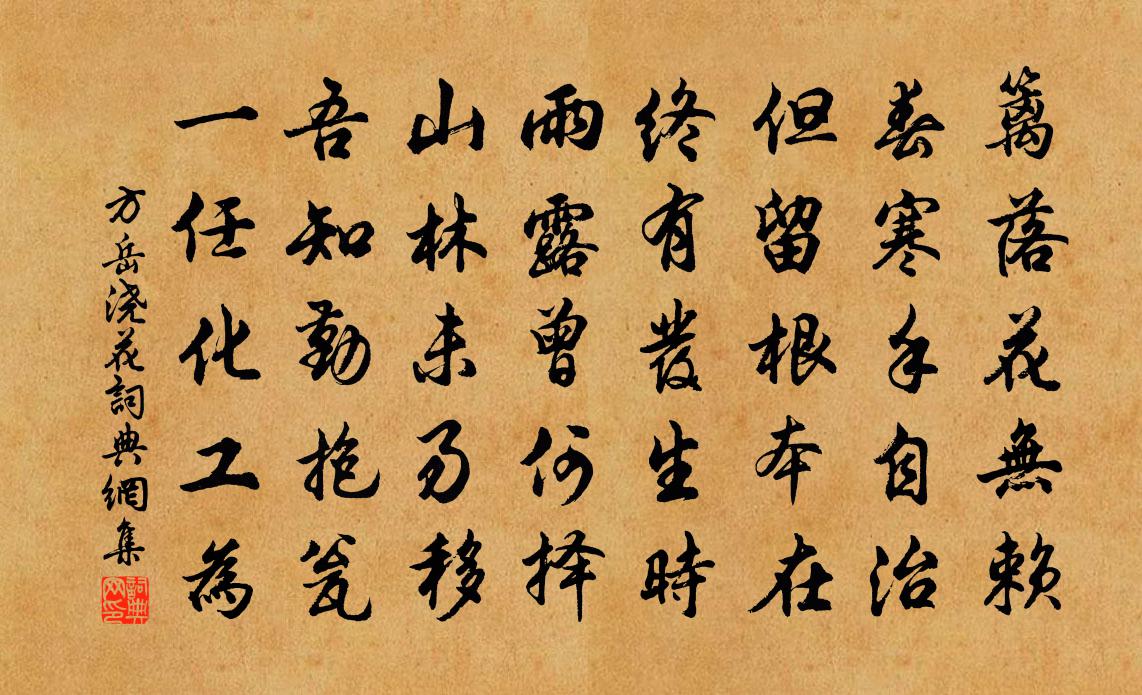 篱落花無賴
春寒手自治
但留根本在
終有發生時
雨露曾何择
山林未易移
吾知勤抱瓮
一任化工為
方岳浇花詞典網集
詞典网印